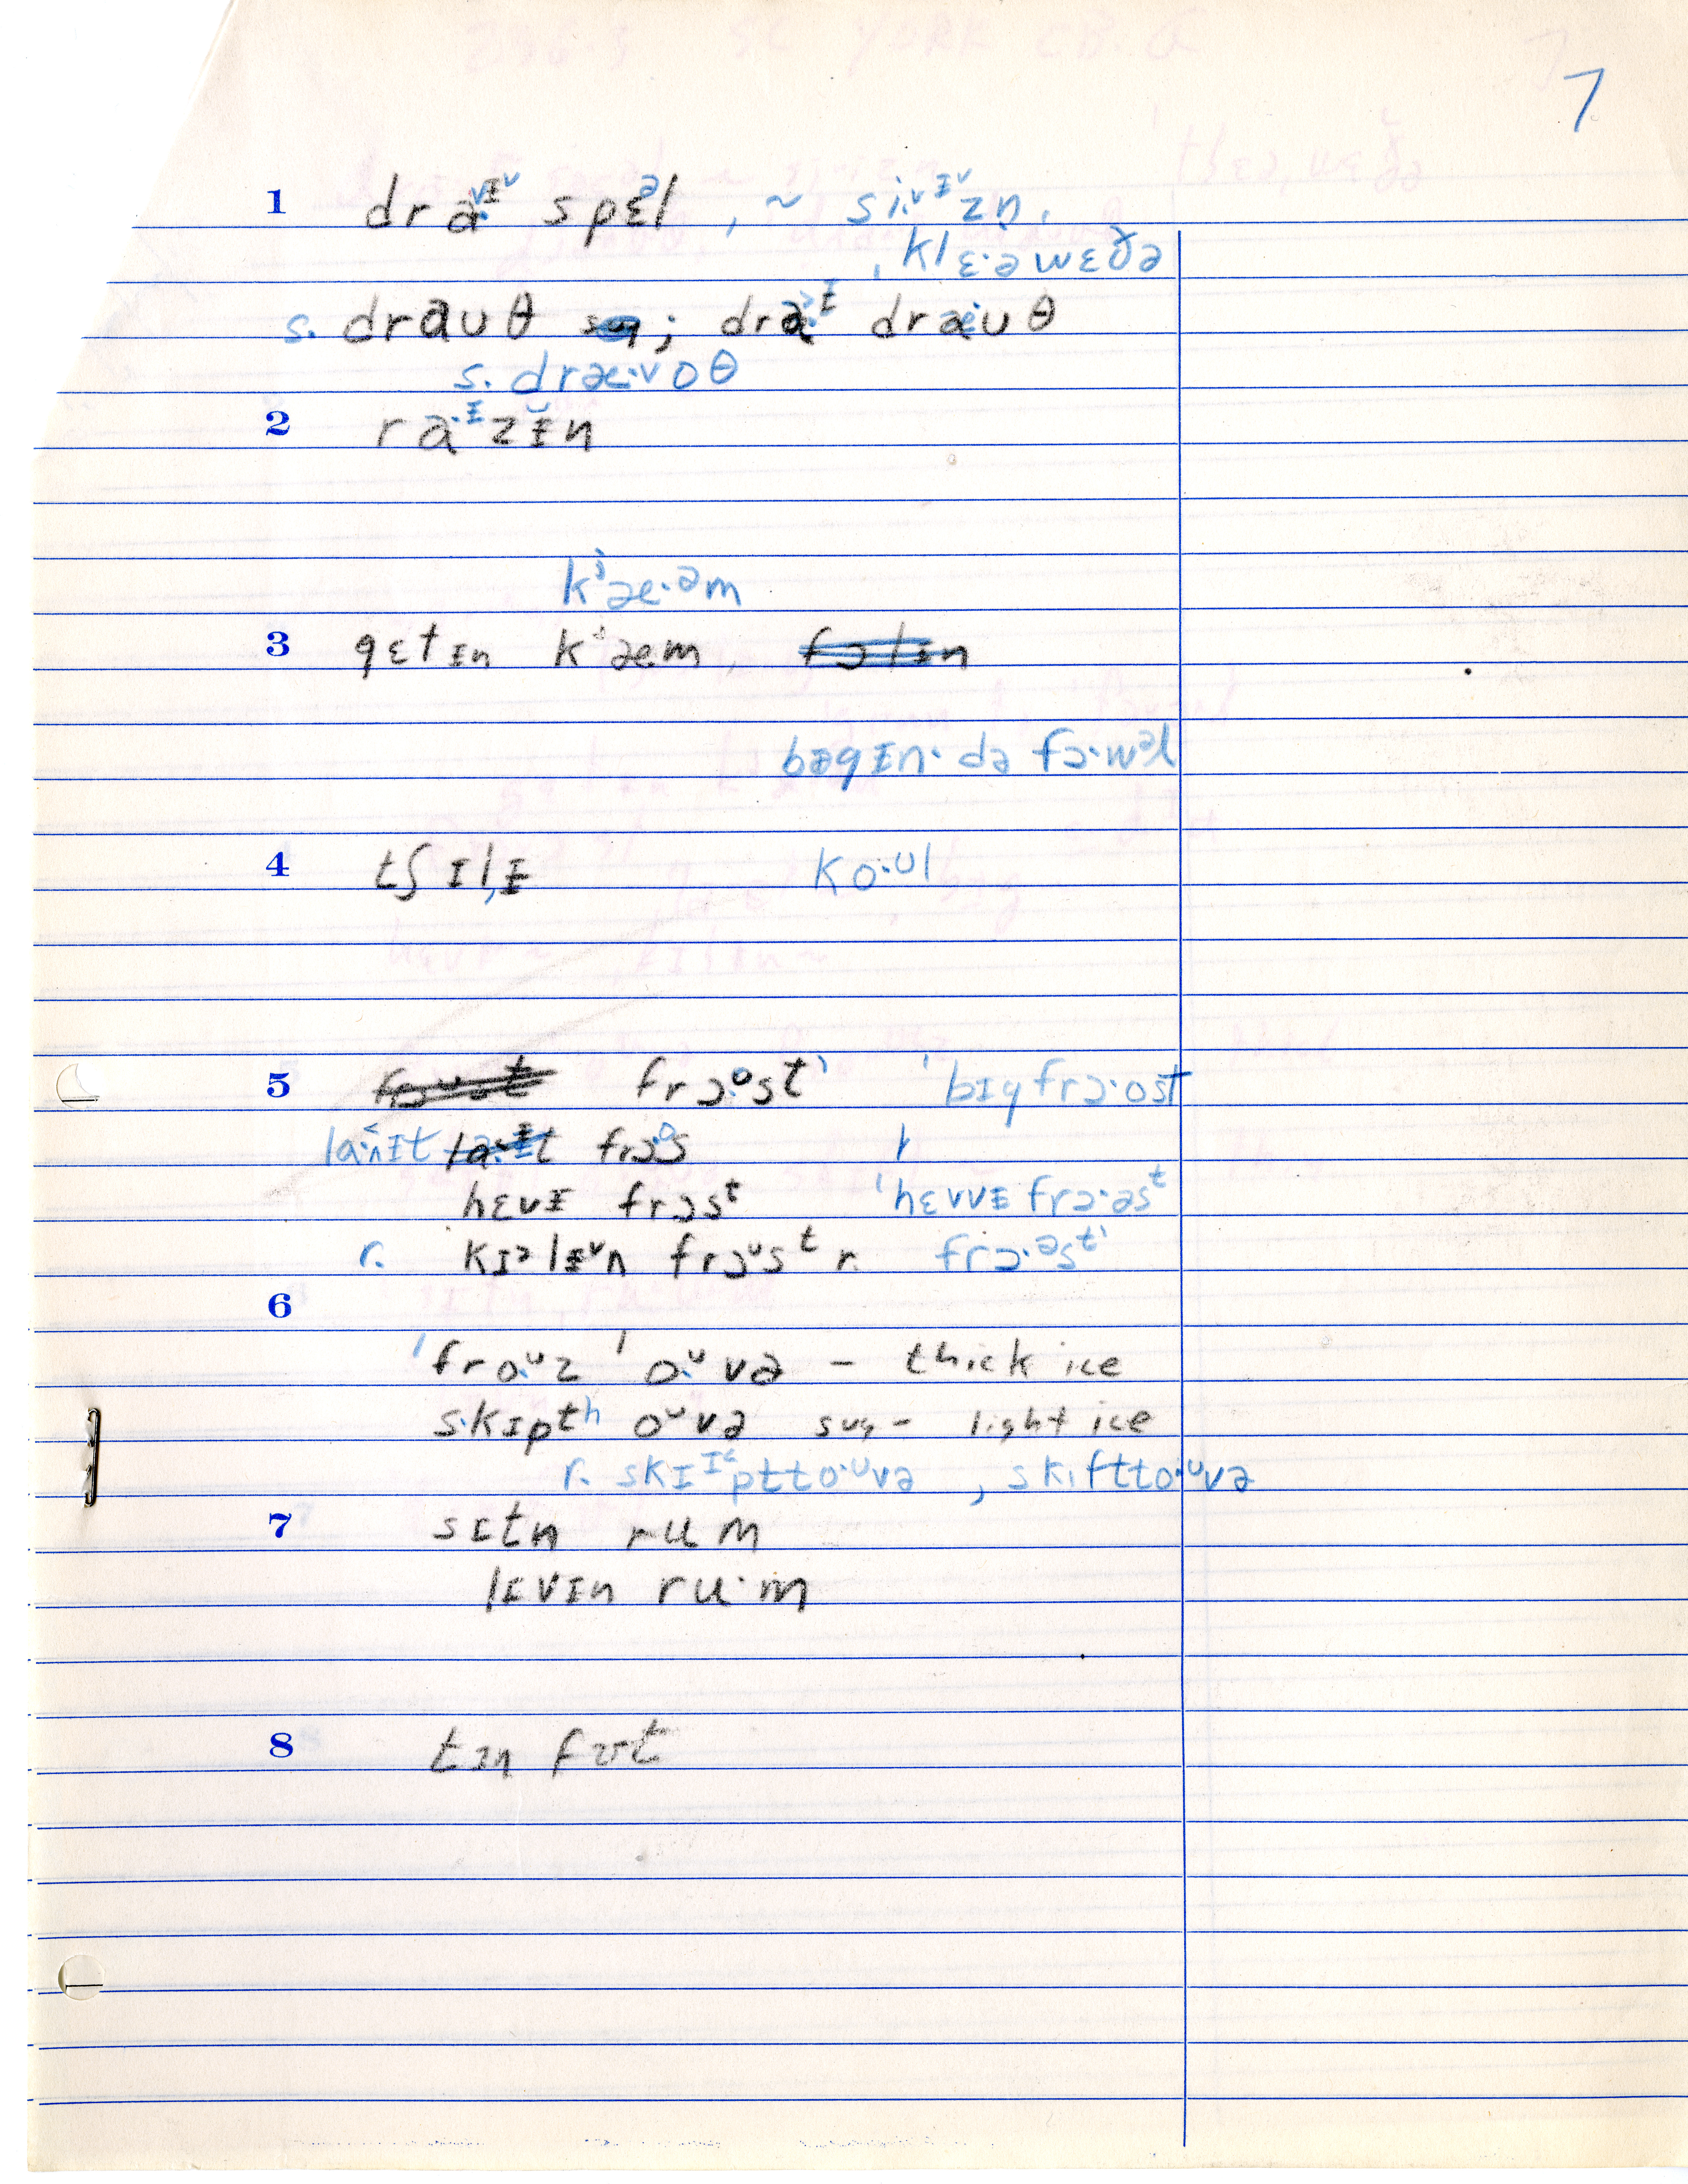 7
1 draᶦ spɛᵊl , ~ si.ᶦzn̩ ,
, klɛ·ə wɛðə
s. drauθ ; draᶦ drauθ
s. dræ·ʊθ
2 ra·ᶦzɨn
kʲæ·əm
3 gɛtɪn kʲæm
bəgɪn· də fɔ·wəl
4 tʃɪlɨ ko·ul
5 frɔ·ᵒst' 'bɪgfrɔ·ost
la·ɪt frɔ·ᵒs
hɛvɨ frɔsᵗ 'hɛvvɨ frɔ·əsᵗ
r. kɪəlɨn frɔᵘsᵗ r. frɔ·əsᵗ'
6
'fro·ᵘz 'o·ᵘvə – thick ice
s·kɪptʰ oᵘvə sug – light ice
r. skɪᶦptto·ᵘvə , skɪftto·ᵘvə
7 sɪtn rum
lɪvɪn ru·m
8 tɪn fʊt